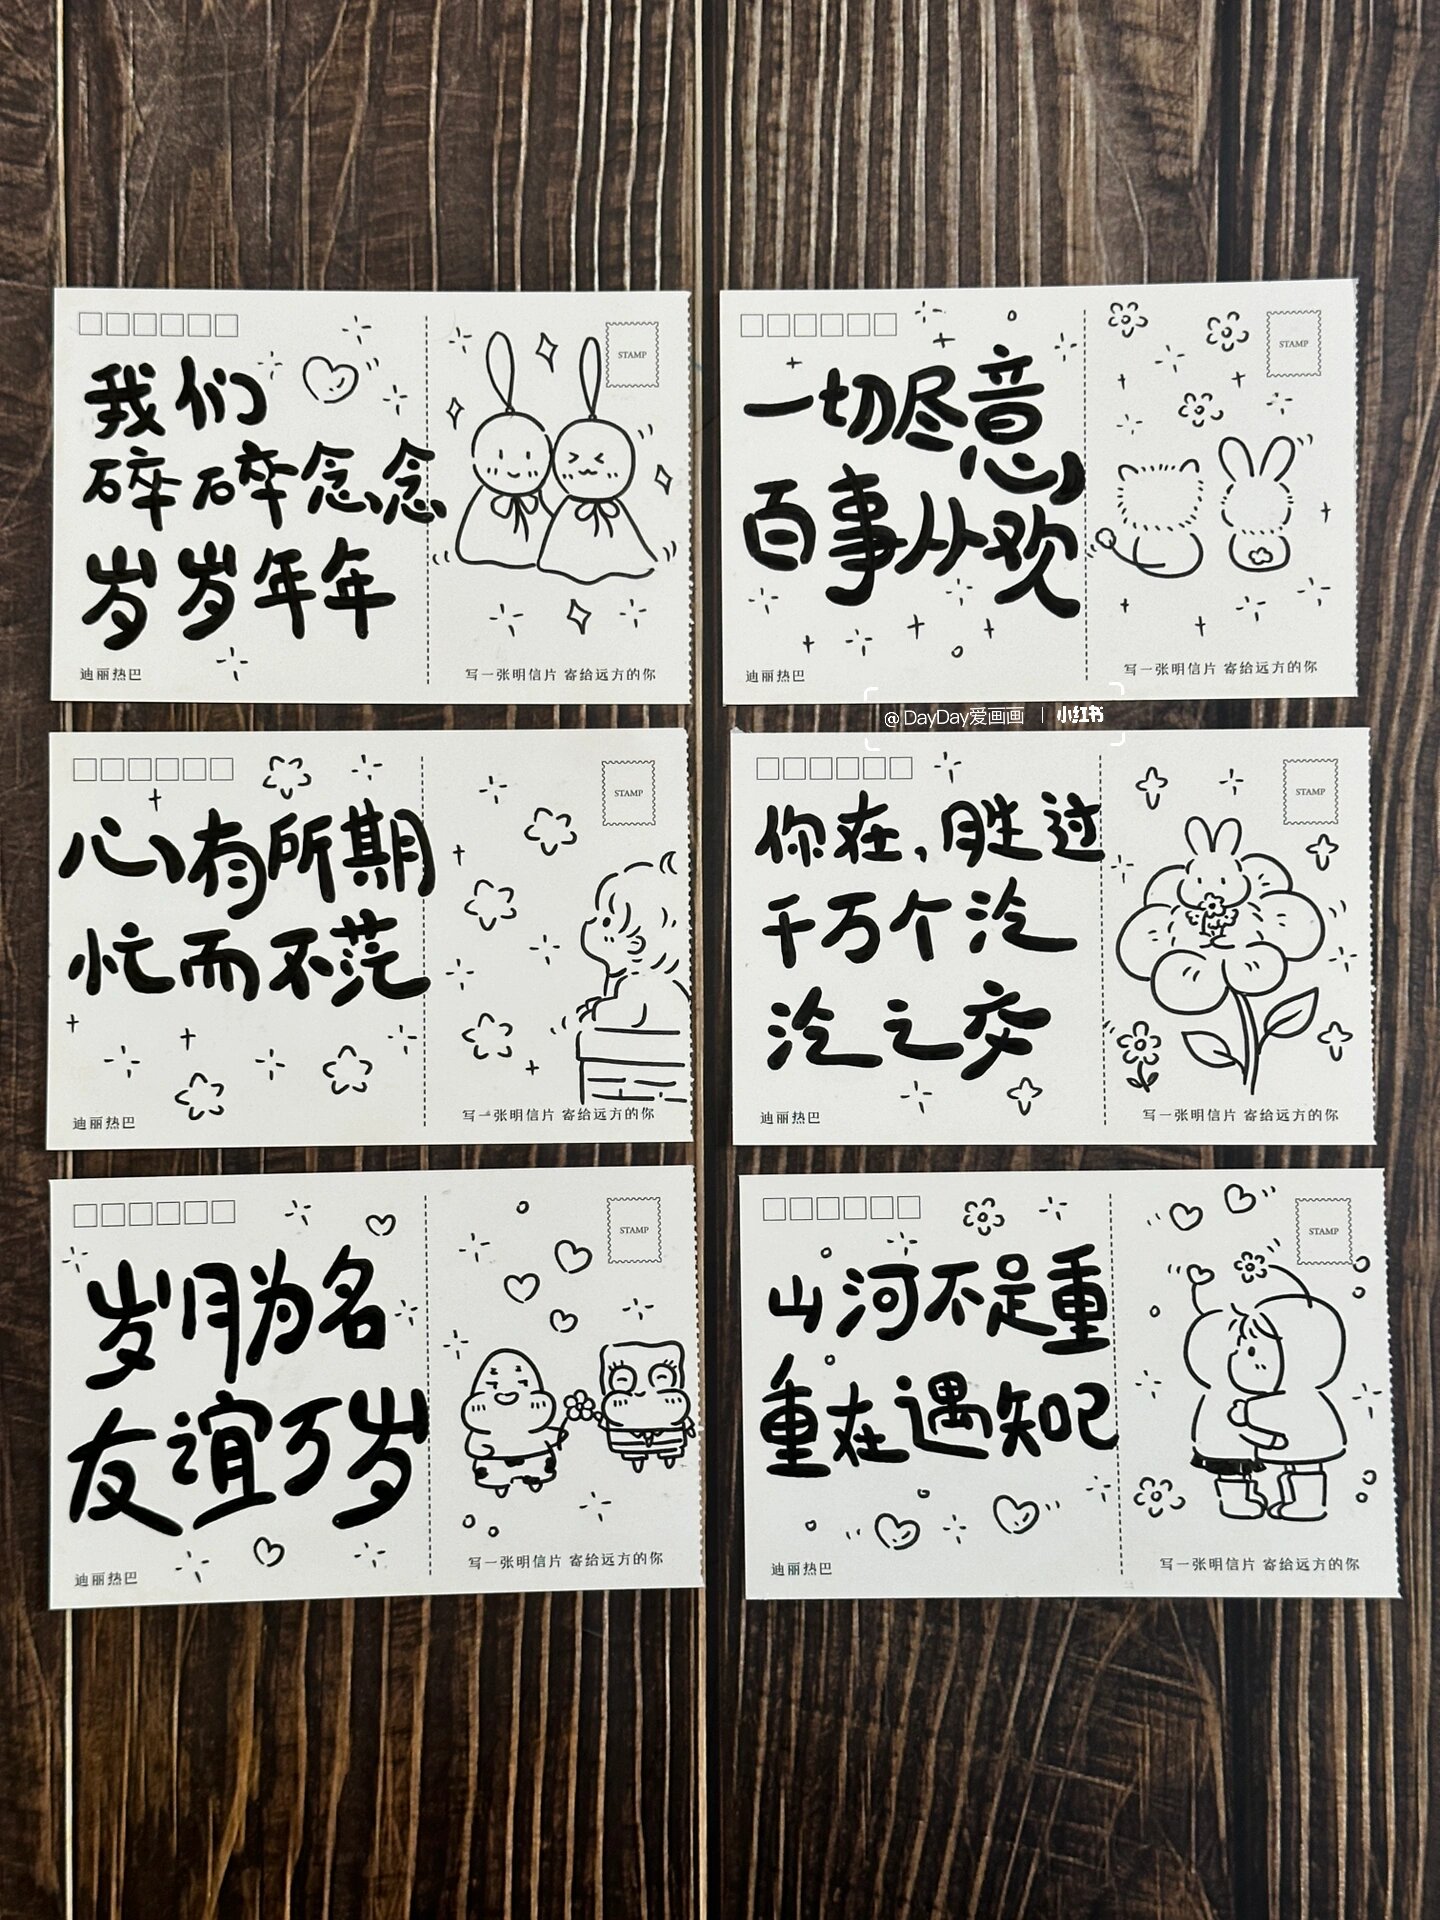 STAMP
我们
碎碎念念
岁岁年年
迪丽热巴
写一张明信片 寄给远方的你
STAMP
一切尽意
百事从欢
迪丽热巴
写一张明信片 寄给远方的你
@DayDay爱画画 | 小红书
STAMP
心有所期
忙而不茫
迪丽热巴
写一张明信片 寄给远方的你
STAMP
你在,胜过
千万个泛
泛之交
迪丽热巴
写一张明信片 寄给远方的你
STAMP
岁月为名
友谊万岁
迪丽热巴
写一张明信片 寄给远方的你
STAMP
山河不足重
重在遇知己
迪丽热巴
写一张明信片 寄给远方的你